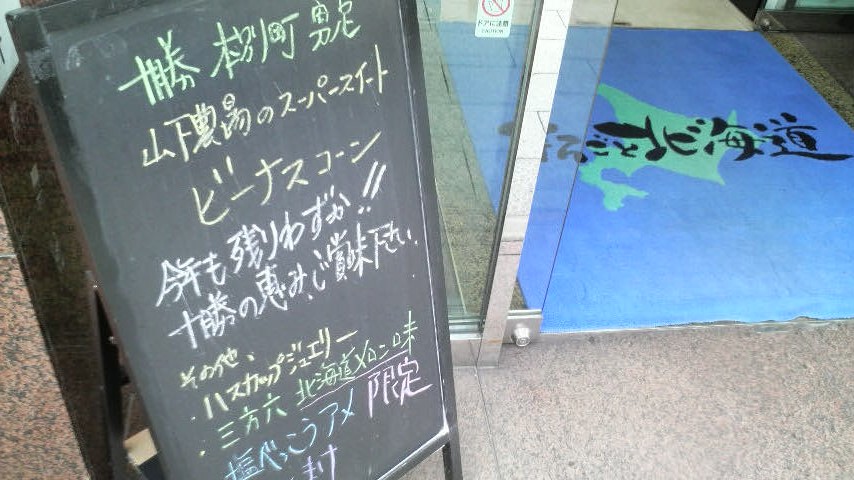 十勝 本別町 限定
山下農場のスーパースイート
ビーナスコーン
今年も残りわずか!!
十勝の恵み、ご賞味下さい
その他、
・ハスカップジュエリー
・三方六 北海道メロン味
塩べっこうアメ 限定
ドアに注意
CAUTION
どさんこ北海道